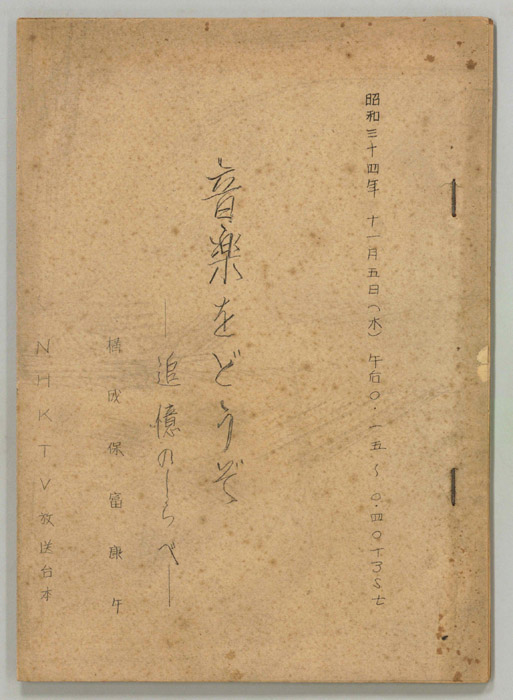 昭和三十四年 十一月五日（木） 午后〇・一五〜〇・四〇
音楽をどうぞ
―追憶のしらべ―
構成 保富康午
NHKTV放送台本